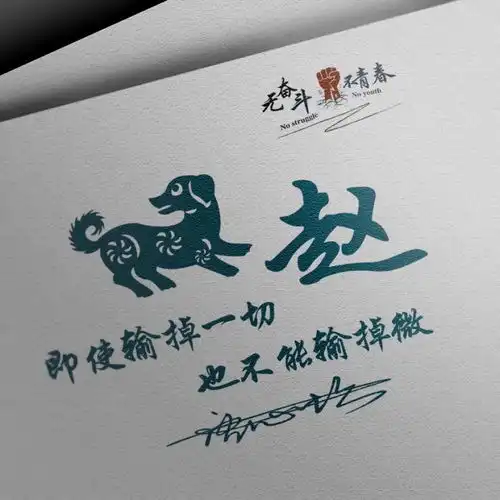 无奋斗 不青春
No struggle No youth
赵
即使输掉一切
也不能输掉微